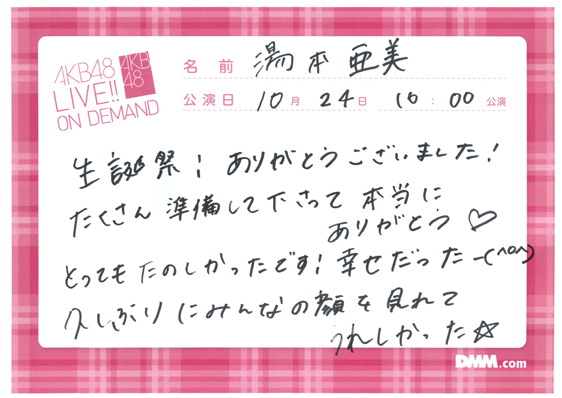 AKB48
LIVE!!
ON DEMAND
AKB
48
名前 湯本亜美
公演日 10月24日 16:00 公演
生誕祭! ありがとうございました!
たくさん準備して下さって本当に
ありがとう♡
とってもたのしかったです! 幸せだったー(^o^)
久しぶりにみんなの顔を見れて
うれしかった☆
DMM.com